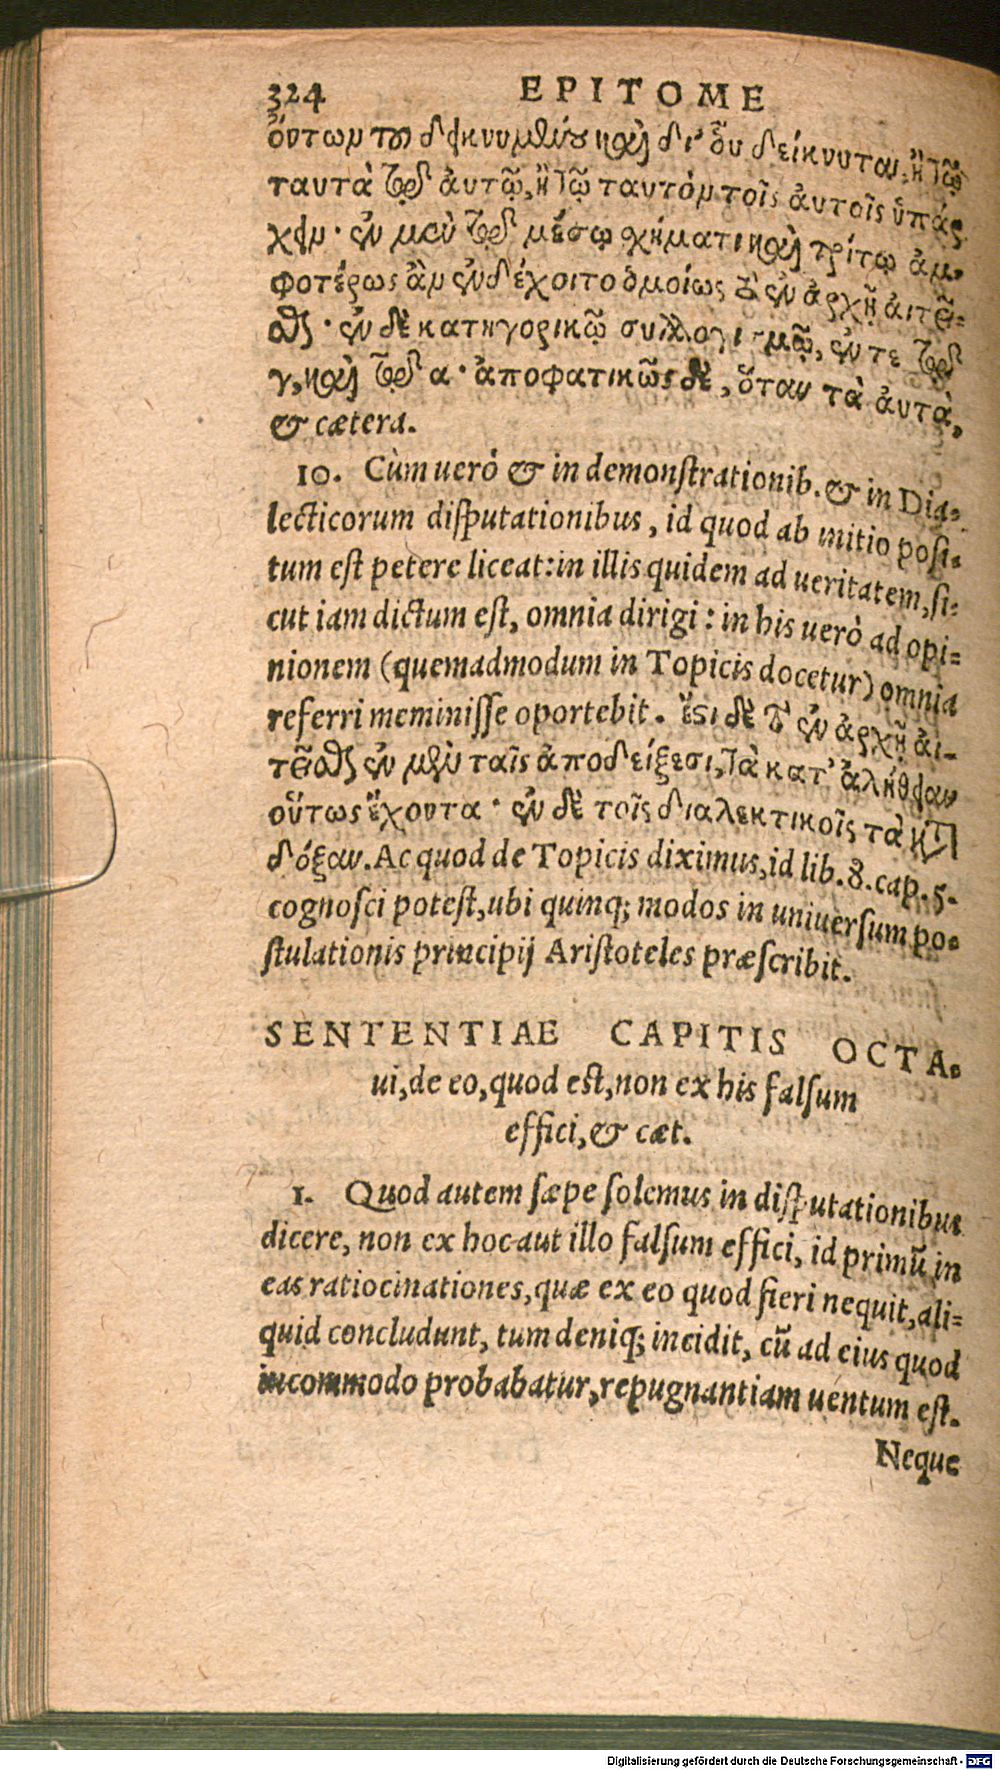 324 EPITOME
ὄντων τοῦ δεικνυμένου καὶ δι' οὗ δείκνυται, ἢ τῷ
ταυτὰ τῷ ἀυτῷ, ἢ τῷ ταυτὸν τοῖς ἀυτοῖς ὑπάρ
χειν· ἐν μὲν τῷ μέσῳ χήματι καὶ τρίτῳ ἀμ-
φοτέρως ἂν ἐνδέχοιτο ὁμοίως τὸ ἐν ἀρχῇ ἀιτεῖ-
σθαι· ἐν δὲ κατηγορικῷ συλλογισμῷ, ἔν τε τῷ
γ, καὶ τῷ α· ἀποφατικῶς δὲ, ὅταν τὰ ἀυτὰ,
& cætera.
10. Cùm uerò & in demonſtrationib. & in Dia-
lecticorum diſputationibus, id quod ab initio poſi-
tum eſt petere liceat: in illis quidem ad ueritatem, ſi-
cut iam dictum eſt, omnia dirigi: in his uerò ad opi-
nionem (quemadmodum in Topicis docetur) omnia
referri meminiſſe oportebit. ἔστι δὲ τὸ ἐν ἀρχῇ ἀι-
τεῖσθαι ἐν μὲν ταῖς ἀποδείξεσι, τὰ κατ' ἀλήθειαν
οὕτως ἔχοντα· ἐν δὲ τοῖς διαλεκτικοῖς τὰ κατὰ
δόξαν. Ac quod de Topicis diximus, id lib. 8. cap. 5.
cognoſci poteſt, ubi quinq; modos in uniuerſum po-
ſtulationis principij Ariſtoteles præſcribit.
SENTENTIAE CAPITIS OCTA-
ui, de eo, quod eſt, non ex his falſum
effici, & cæt.
1. Quod autem ſæpe ſolemus in diſputationibus
dicere, non ex hoc aut illo falſum effici, id primũ in
eas ratiocinationes, quæ ex eo quod fieri nequit, ali-
quid concludunt, tum deniq; incidit, cũ ad eius quod
incommodo probabatur, repugnantiam uentum eſt.
Neque
Digitalisierung gefördert durch die Deutsche Forschungsgemeinschaft - DFG